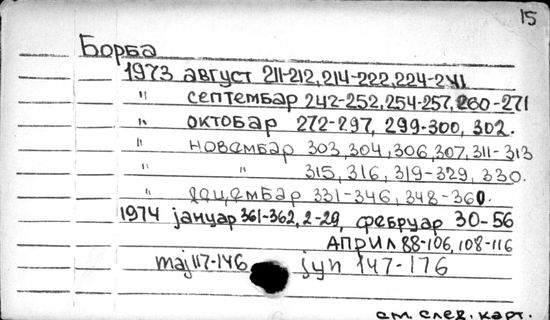 15
Борба
1973 август 211-212, 214-222, 224-241
" септембар 242-252, 254-257, 260-271
" октобар 272-297, 299-300, 302.
" новембар 303, 304, 306, 307, 311-313
" " 315, 316, 319-329, 330.
" децембар 331-346, 348-360.
1974 јануар 361-362, 2-29, фебруар 30-56
април 88-106, 108-116
мај 117-146 јун 147-176
см. след. карт.